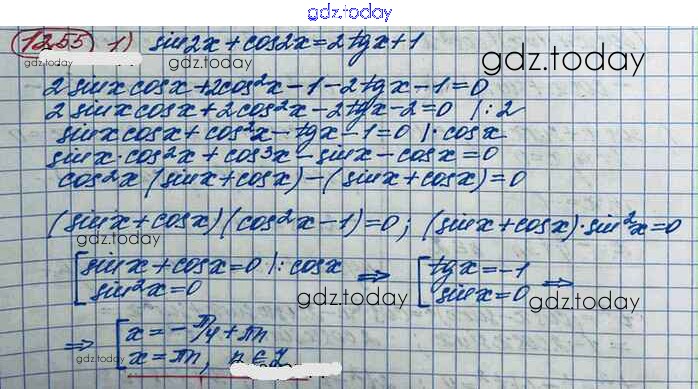 gdz.today
1255 1) sin2x + cos2x = 2tgx + 1
gdz.today
gdz.today
2 sinx cosx + 2cos²x - 1 - 2tgx - 1 = 0
2 sinx cosx + 2cos²x - 2tgx - 2 = 0 |:2
sinx cosx + cos²x - tgx - 1 = 0 |· cosx
sinx·cos²x + cos³x - sinx - cosx = 0
cos²x (sinx + cosx) - (sinx + cosx) = 0
(sinx + cosx)(cos²x - 1) = 0; (sinx + cosx)·sin²x = 0
gdz.today
[ sinx + cosx = 0 |: cosx ⇒ [ tgx = -1 ⇒
sin²x = 0 sinx = 0
gdz.today
gdz.today
⇒ [ x = -π/4 + πn
x = πn, n ∈ Z
gdz.today